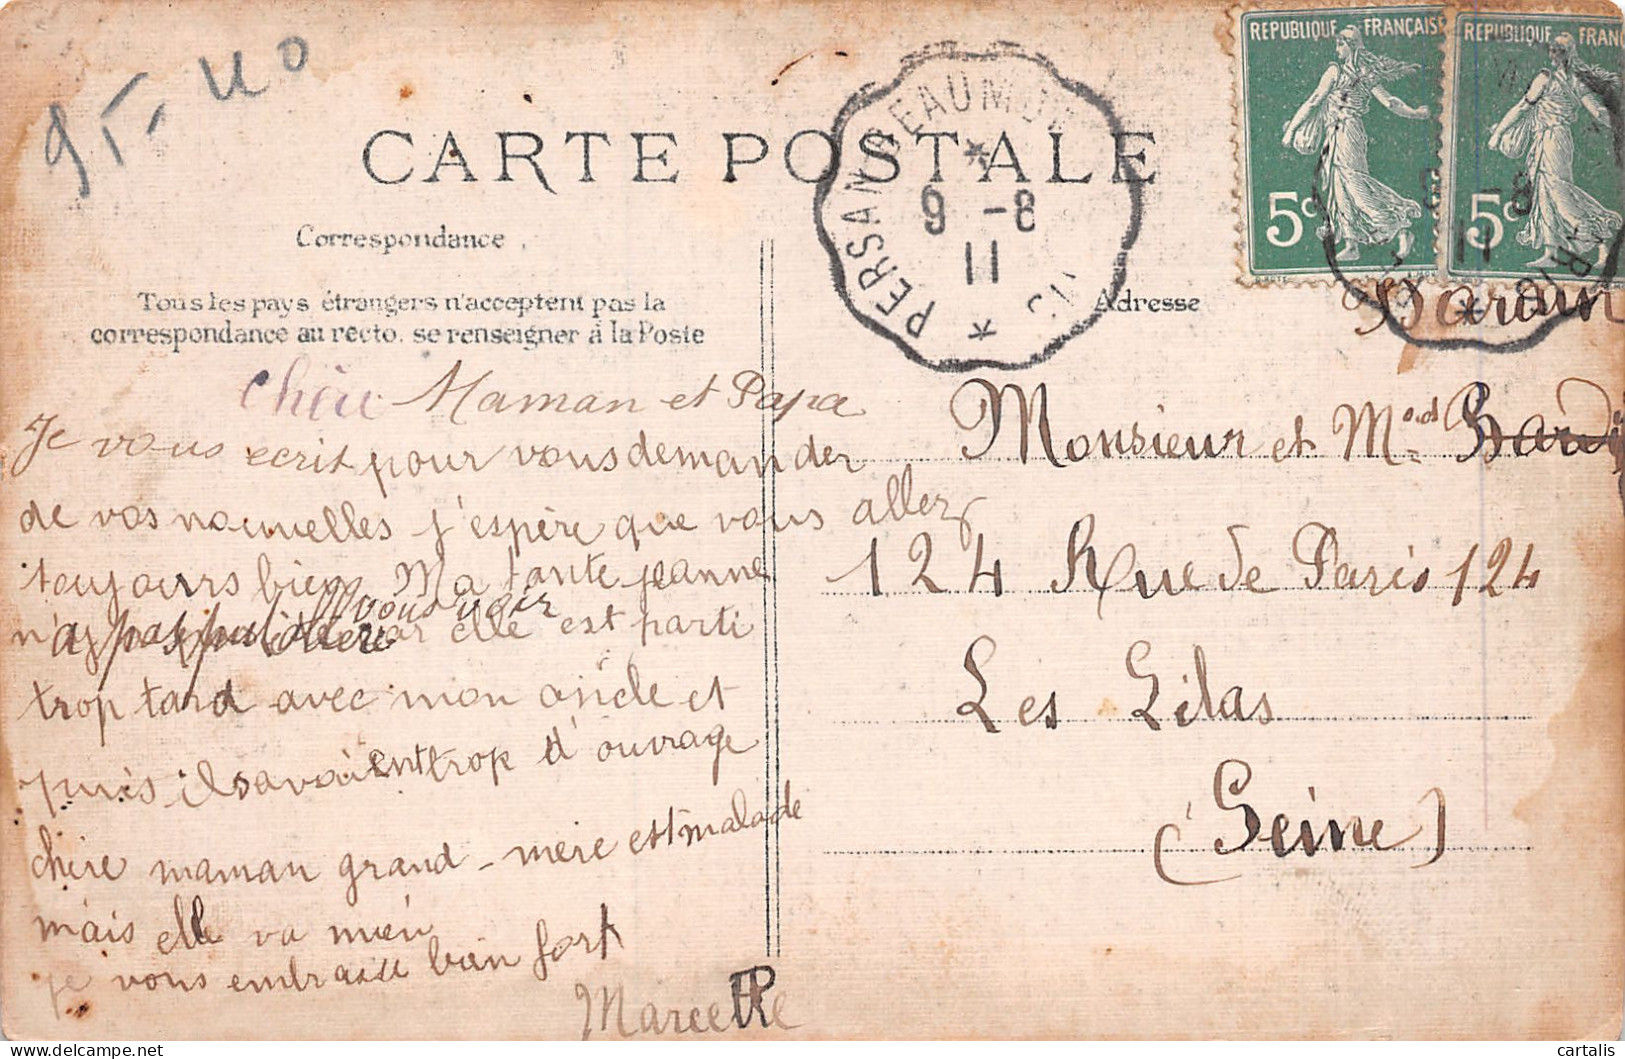 95-40
REPUBLIQUE FRANÇAISE
5c
REPUBLIQUE FRAN
5c
CARTE POSTALE
PERSAN BEAUMONT
9 -8
11
-8
11
Correspondance
Tous les pays étrangers n'acceptent pas la
correspondance au recto, se renseigner à la Poste
Adresse
chère Maman et Papa
Je vous ecrit pour vous demander
de vos nouvelles j'espère que vous allez
toujours bien Ma tante jeanne
n'a pas pu aller vous voir car elle est parti
trop tard avec mon oncle et
puis ils avaient trop d'ouvrage
chère maman grand-mère est malade
mais elle va mieu
je vous embrasse bien fort
Marcelle
Monsieur et M.
124 Rue de Paris 124
Les Lilas
(Seine)
cartalis